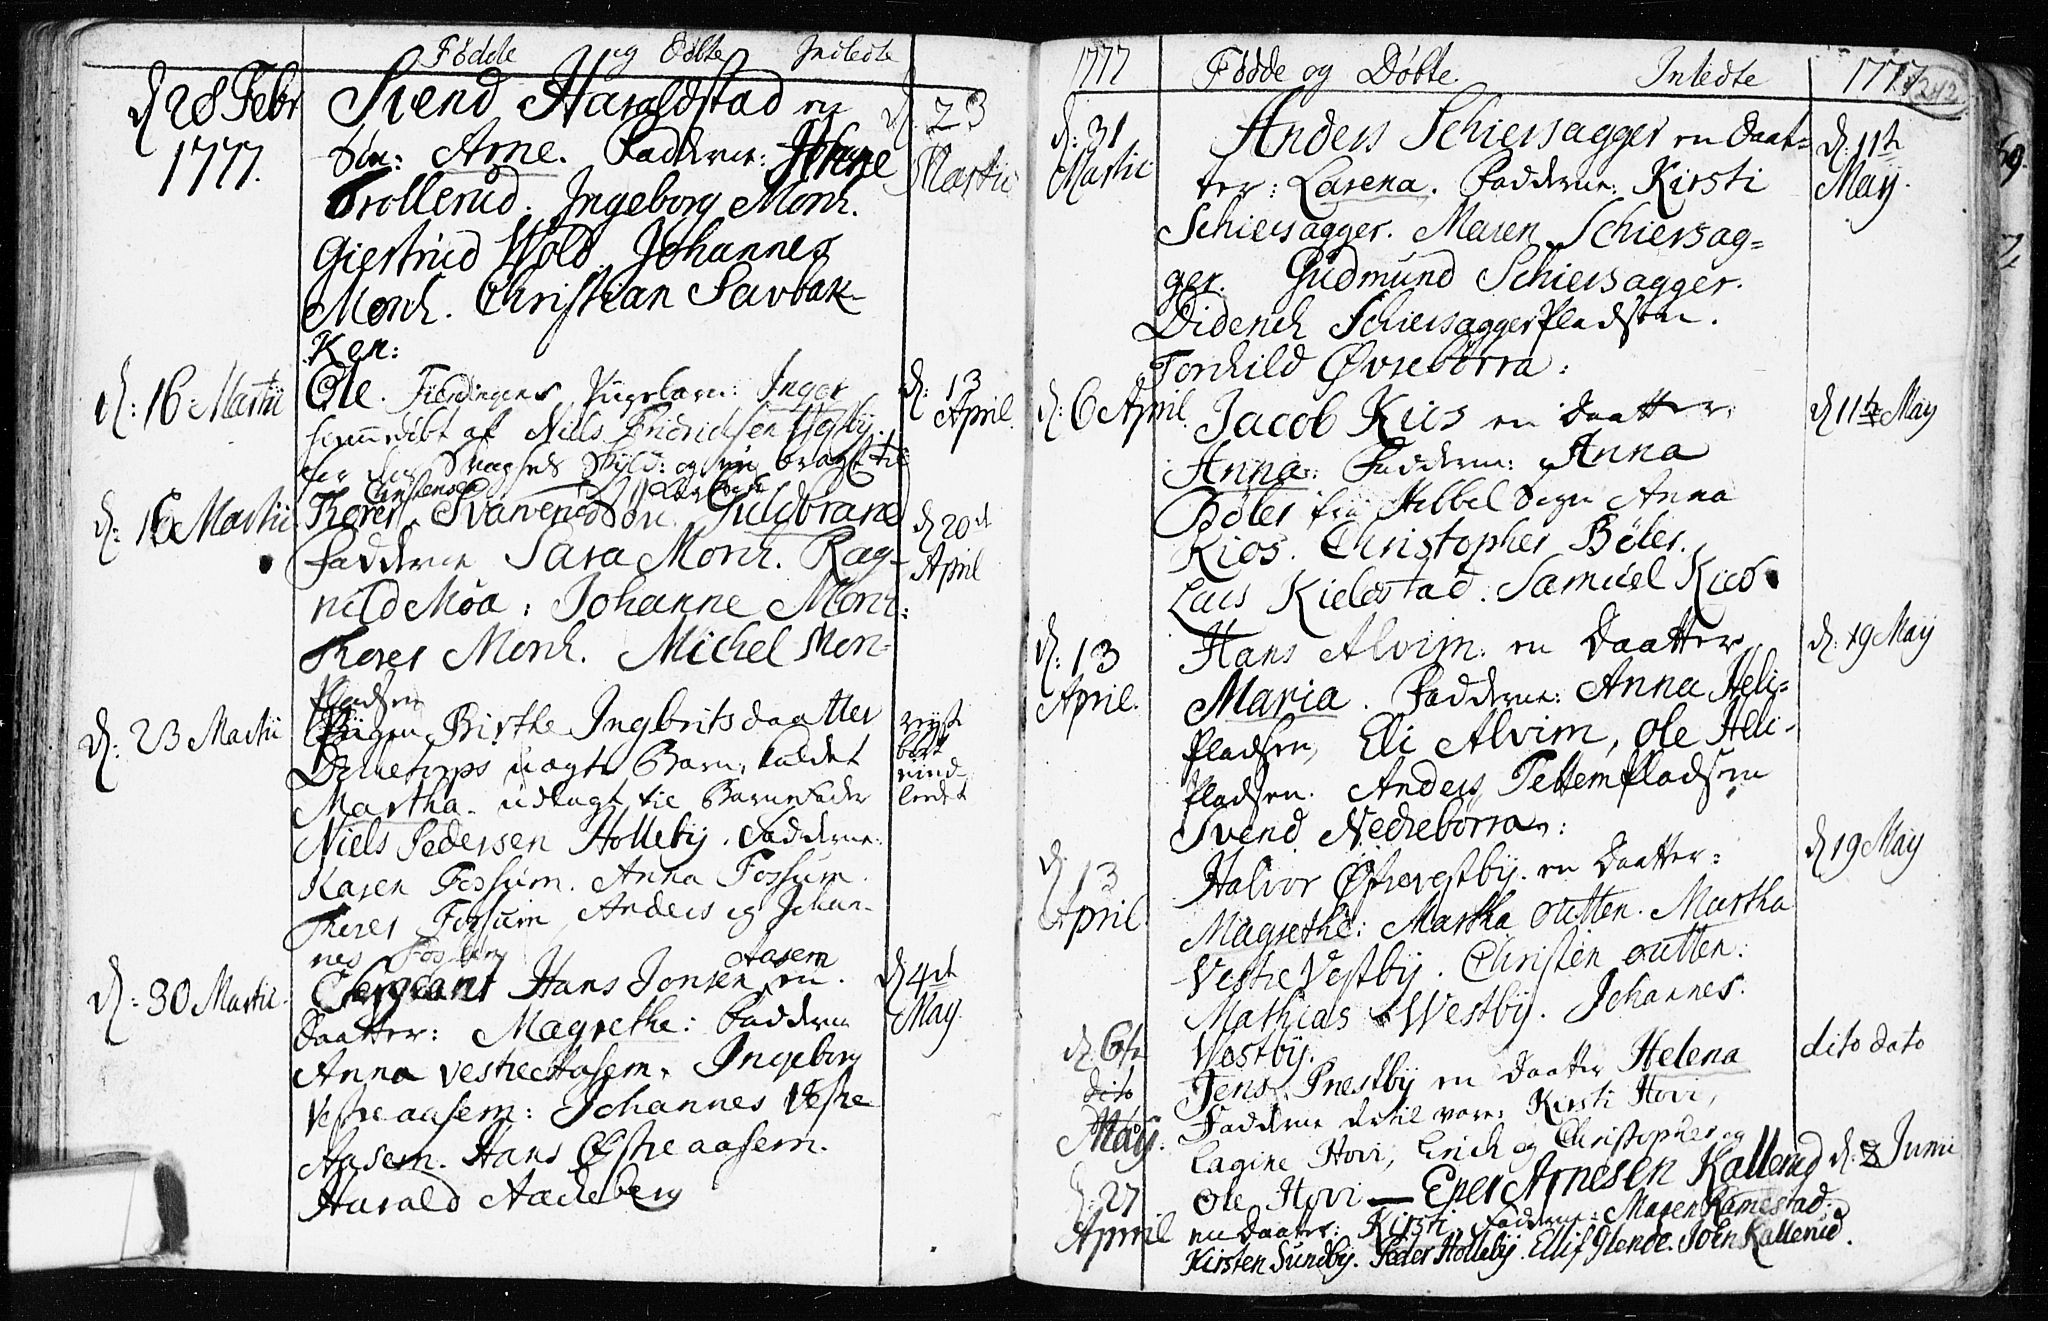 Fødde og Døbte Inledte
d 28 Febr 1777.
Svend Haraldstad en
Søn: Arne. Fadderne: Johane
Trollerud. Ingeborg Monh.
Giertrud Wold. Johannes
Monh. Christian Savbak-
Ken:
d. 23 Martii
d: 16: Martii
Ole Pigebarn: Inger
hiemmedøbt af Niels Friderichsen Vestby.
for des Svagheds Skyld: og bragt til
d: 13 April.
d: 16 Martii
Christensen
Thorer Svarverud Søn Guldbrand
Fadderne Sara Monh. Rag-
nild Moa: Johanne Monh:
Thorer Monh. Michel Mon-
Pladsen
d 20de April
d: 23 Martii
Pigen Birthe Ingbritsdaatter
uægte Barn, kaldet
Martha. udlagt til Barnefader
Niels Pedersen Holleby. Fadderne:
Karen Fossum. Anna Fossum.
Thorer Fossum Anders og Johan-
nes Fossum
d: 30 Martii
Aasem
Sergeant Hans Jonsen en
Daatter: Magrethe: Fadderne
Anna vestre Aasem. Ingeborg
Vestre aasem: Johannes Vestre
Aasem. Hans Østre aasem.
Harald Aackeberg
d 4de May.
1777 Fødde og Døbte. Inledte 1777
242
d: 31 Martii
Anders Schiersagger en Daat=
ter: Larena. Fadderne: Kirsti
Schiersagger. Maren Schiersag=
ger. Gudmund Schiersagger.
Diderich Schiersaggerpladsen.
Torchild Øvreborra:
d: 11te Maij.
d: 6 April.
Jacob Kios en Daatter:
Anna: Fadderne: Anna
Bøler fra Hebbel Sogn Anna
Kios. Christopher Bøler.
Lars Kielestad. Samuel Kios
d 11te May
d: 13 April.
Hans Alvim: en Daatter
Maria. Fadderne: Anna Heli=
pladsen, Eli Alvim, Ole Heli-
pladsen. Anders Tettempladsen
Svend Nedreborra:
d: 19 Maij
d. 13 April.
Halvor Østrevestby. en Daatter:
Magrethe: Martha outten. Martha
Vestre Vestby. Christen outten:
Mathias Westby. Johannes.
Westby.
d 19 Maij
d. 6te dito May.
Jens Prestby en Daatter Helena
Fadderne dertil vare: Kirsti Hovi,
Lagine Hovi, Erich og Christopher og
Ole Hovi —
dito dato
d: 27 April
Ener Arnesen Kallerud
en Daatter: Kirsti. Fadderne: Maren Ramestad:
Kirsten Sundby. Peder Holleby. Ellif Glende. Joen Kallerud.
d: 2 Junii